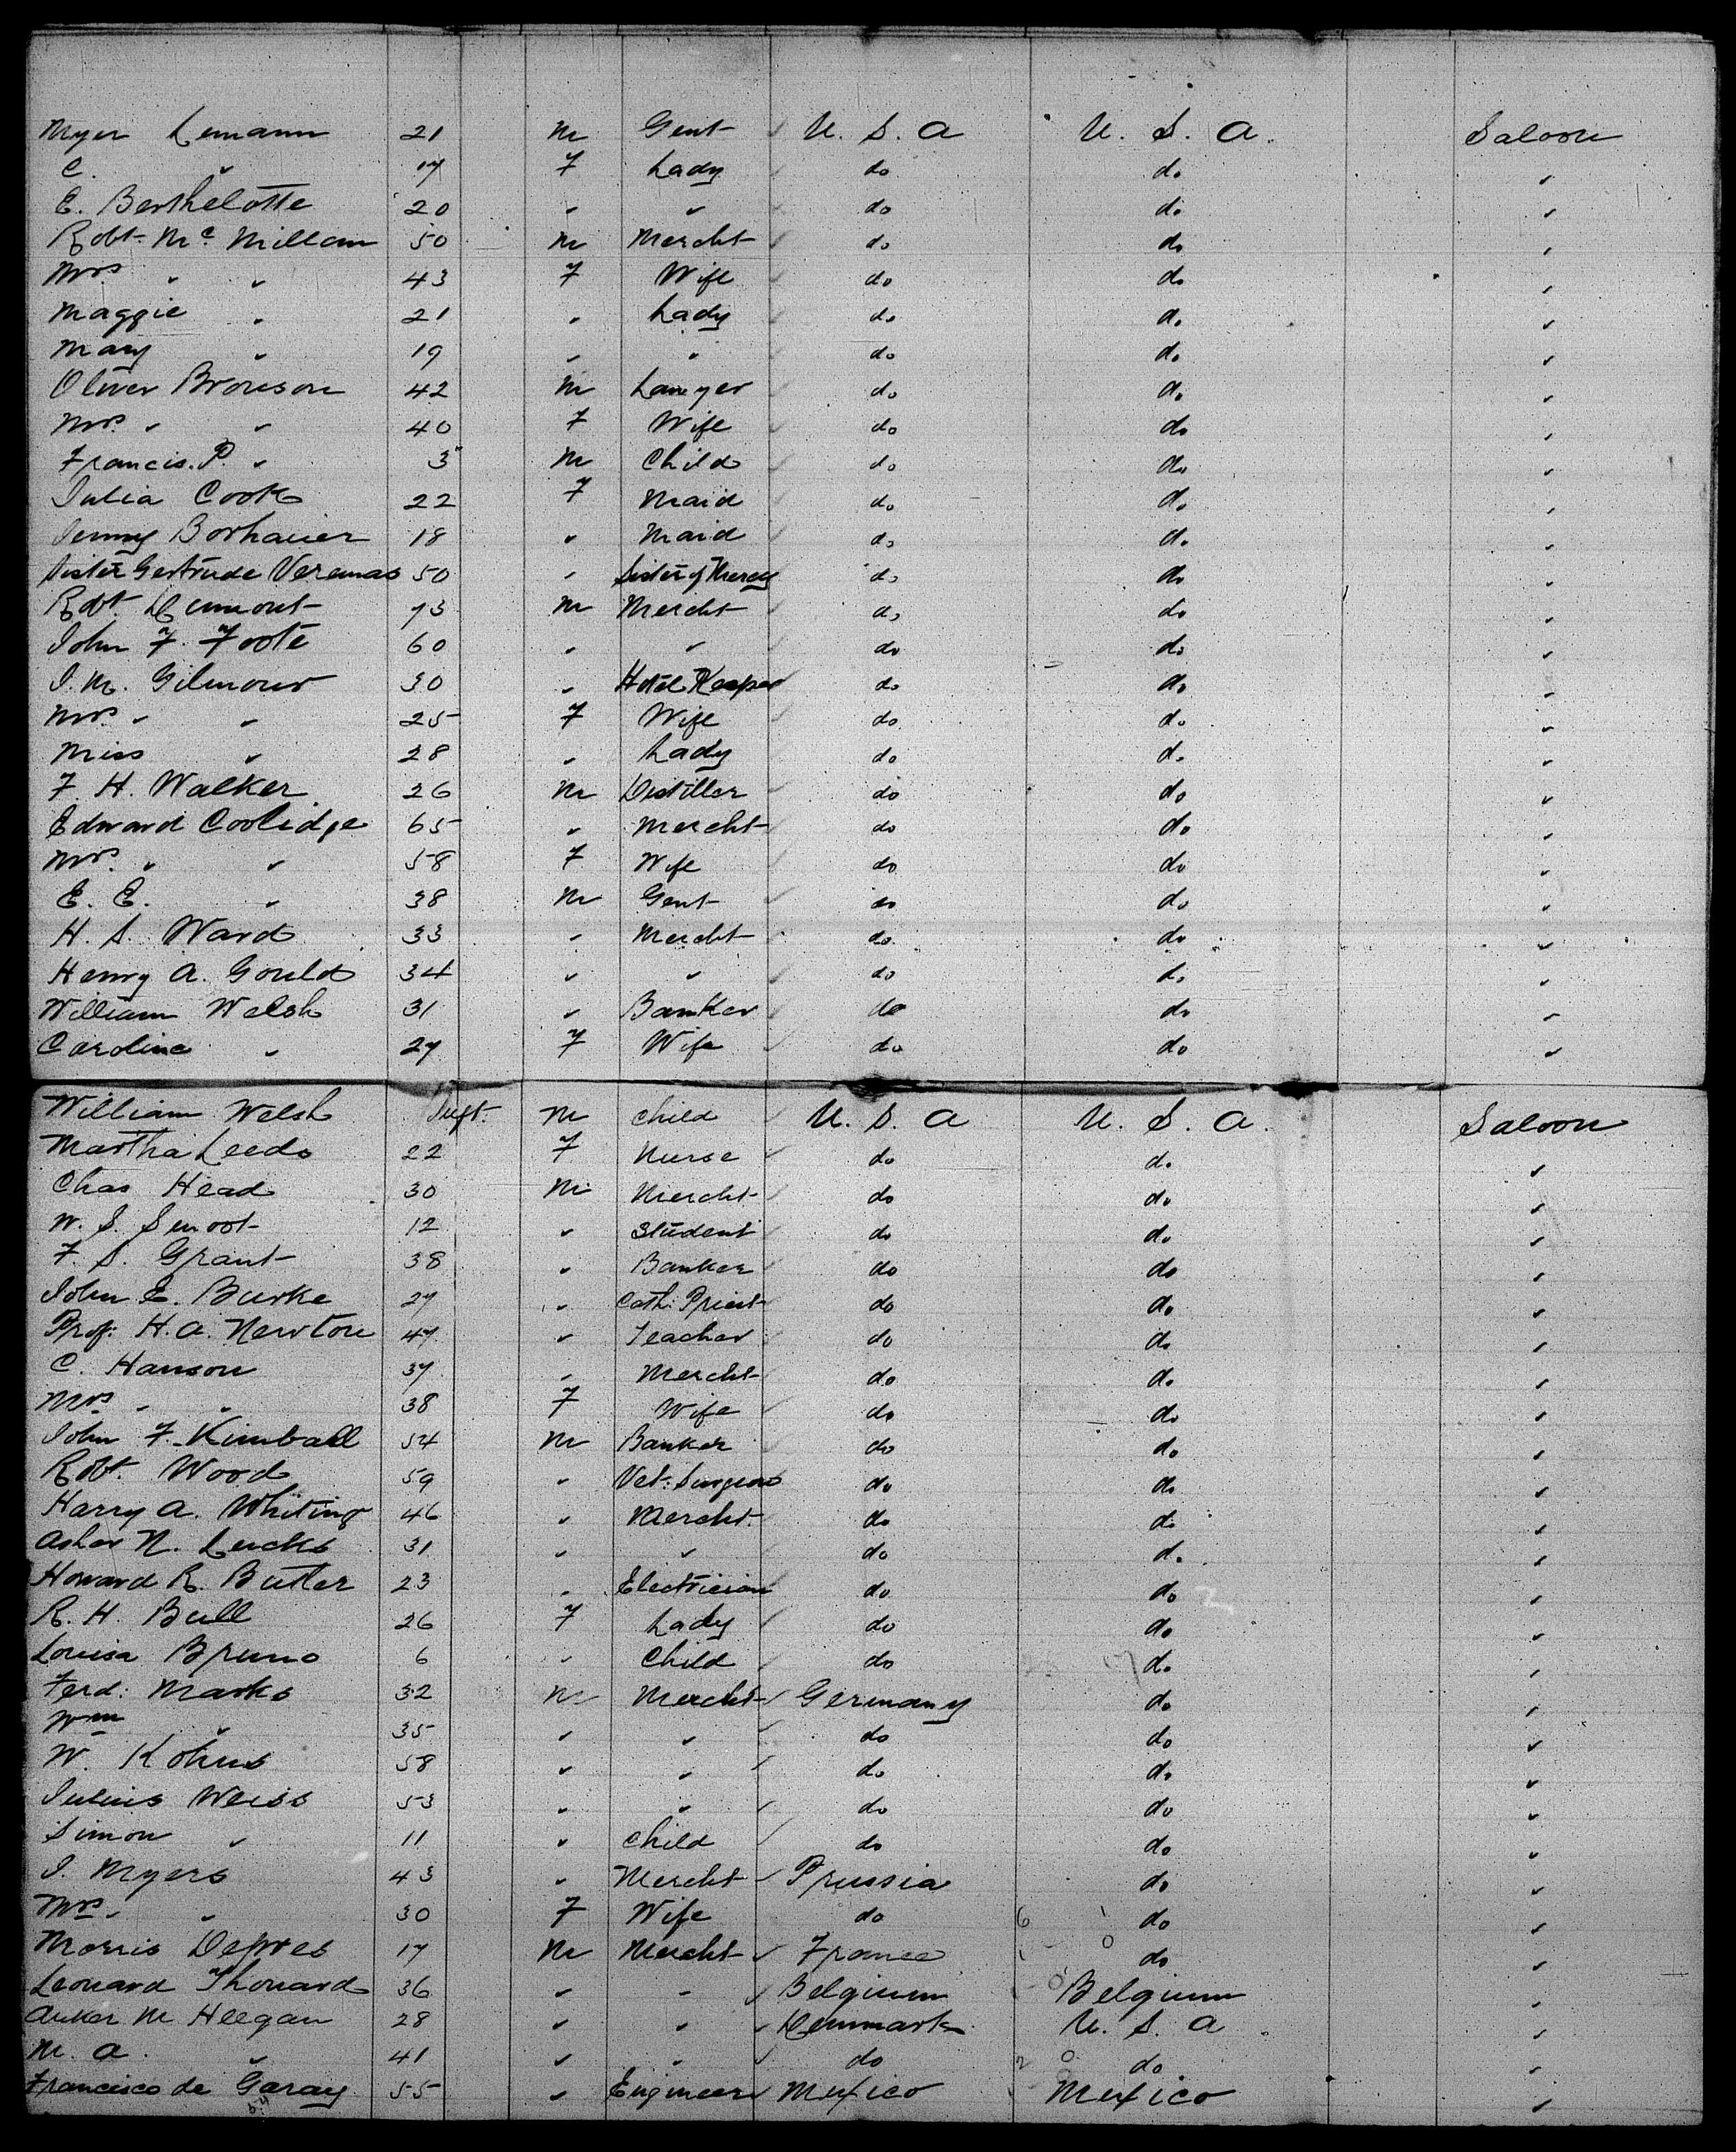 Myer Lemann 21 M Gent U. S. A U. S. A. Saloon
C. " 17 F Lady do do "
E. Berthelotte 20 " " do do "
Robt. Mc Millan 50 M Mercht do do "
Mrs " " 43 F Wife do do "
Maggie " 21 " Lady do do "
Mary " 19 " " do do "
Oliver Bronson 42 M Lawyer do do "
Mrs. " " 40 F Wife do do "
Francis. P. " 3 M Child do do "
Julia Cook 22 F Maid do do "
Jenny Borhauer 18 " Maid do do "
Sister Gertrude 50 " Sister of Mercy do do "
Robt. Dumont 73 M Mercht do do "
John F. Foote 60 " " do do "
J. M. Gilmour 30 " Hotel Keeper do do "
Mrs. " " 25 F Wife do do "
Miss " 28 " Lady do do "
F. H. Walker 26 M Distiller do do "
Edward Coolidge 65 " Mercht do do "
Mrs. " " 58 F Wife do do "
E. E. " 38 M Gent do do "
H. S. Ward 33 " Mercht do do "
Henry A. Gould 34 " " do do "
William Welsh 31 " Banker do do "
Caroline " 27 F Wife do do "
William Welsh Inft. M Child U. S. A U. S. A. Saloon
Martha Leeds 22 F Nurse do do "
Chas Head 30 M Mercht do do "
W. S. Smoot 12 " Student do do "
F. S. Grant 38 " Banker do do "
John E. Burke 27 " Cath: Priest do do "
Prof: H. A. Newton 47 " Teacher do do "
C. Hanson 37 " Mercht do do "
Mrs " " 38 F Wife do do "
John F. Kimball 54 M Banker do do "
Robt. Wood 59 " Vet: Surgeon do do "
Harry A. Whiting 46 " Mercht. do do "
Asher N. 31 " " do do "
Howard R. Butler 23 " Electrician do do "
R. H. Bull 26 F Lady do do "
Louisa Bruno 6 " Child do do "
Ferd: Marks 32 M Mercht Germany do "
Wm " 35 " " do do "
W. Kohns 58 " " do do "
Julius Weiss 53 " " do do "
Simon " 11 " Child do do "
I. Myers 43 " Mercht Prussia do "
Mrs " " 30 F Wife do do "
Morris Depres 17 M Mercht France do "
Leonard Thonard 36 " " Belgium Belgium "
Anker M Heegan 28 " " Denmark U. S. A "
M. A. " 41 " " do do "
Francisco de Garay 55 " Engineer Mexico Mexico "